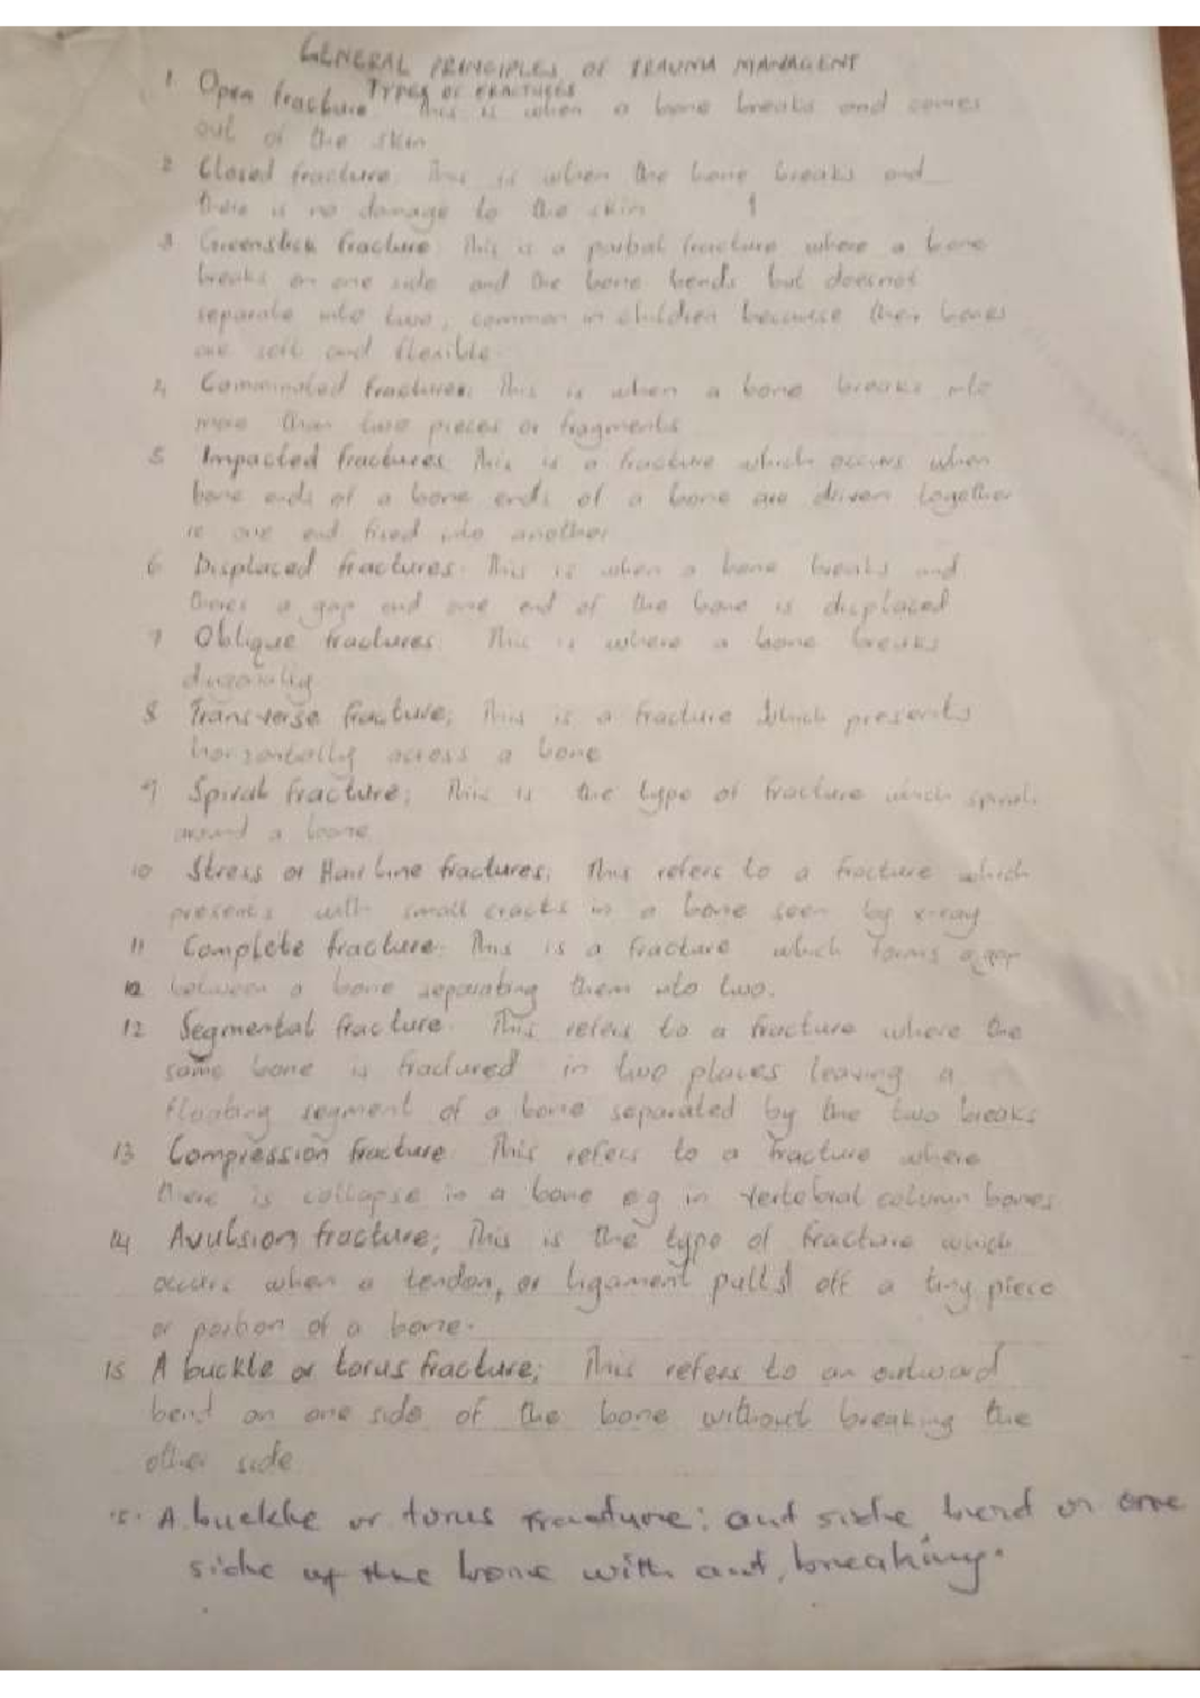 GENERAL PRINCIPLES OF TRAUMA MANAGENT
TYPES OF FRACTURES
1. Open fracture This is when a bone breaks and comes
out of the skin
2 Closed fracture. This is when the bone breaks and
there is no damage to the skin
3 Greenstick fracture. This is a partial fracture where a bone
breaks on one side and the bone bends but doesnot
separate into two, common in children because their bones
are soft and flexible.
4 Comminuted fractures. This is when a bone breaks into
more than two pieces or fragments
5 Impacted fractures. This is a fracture which occurs when
bone ends of a bone ends of a bone are driven together
ie one end fixed into another
6 Displaced fractures. This is when a bone breaks and
theres a gap and one end of the bone is displaced
7 Oblique fractures. This is where a bone breaks
8 Transverse fracture; This is a fracture which presents
horizontally across a bone
9 Spiral fracture; This is the type of fracture which spirals
around a bone.
10 Stress or Hair line fractures; This refers to a fracture which
presents with small cracks in a bone seen by x-ray
11 Complete fracture. This is a fracture which forms a gap
12 between a bone separating them into two.
12 Segmental fracture. This refers to a fracture where the
same bone is fractured in two places leaving a
floating segment of a bone separated by the two breaks
13 Compression fracture. This refers to a fracture where
there is collapse in a bone eg in vertebral column bones.
14 Avulsion fracture; This is the type of fracture which
occurs when a tendon, or ligament pulls off a tiny piece
or portion of a bone.
15 A buckle or torus fracture; This refers to an outward
bend on one side of the bone without breaking the
other side
15. A buckke or torus fracture: out side bend on one
side of the bone with out, breaking.